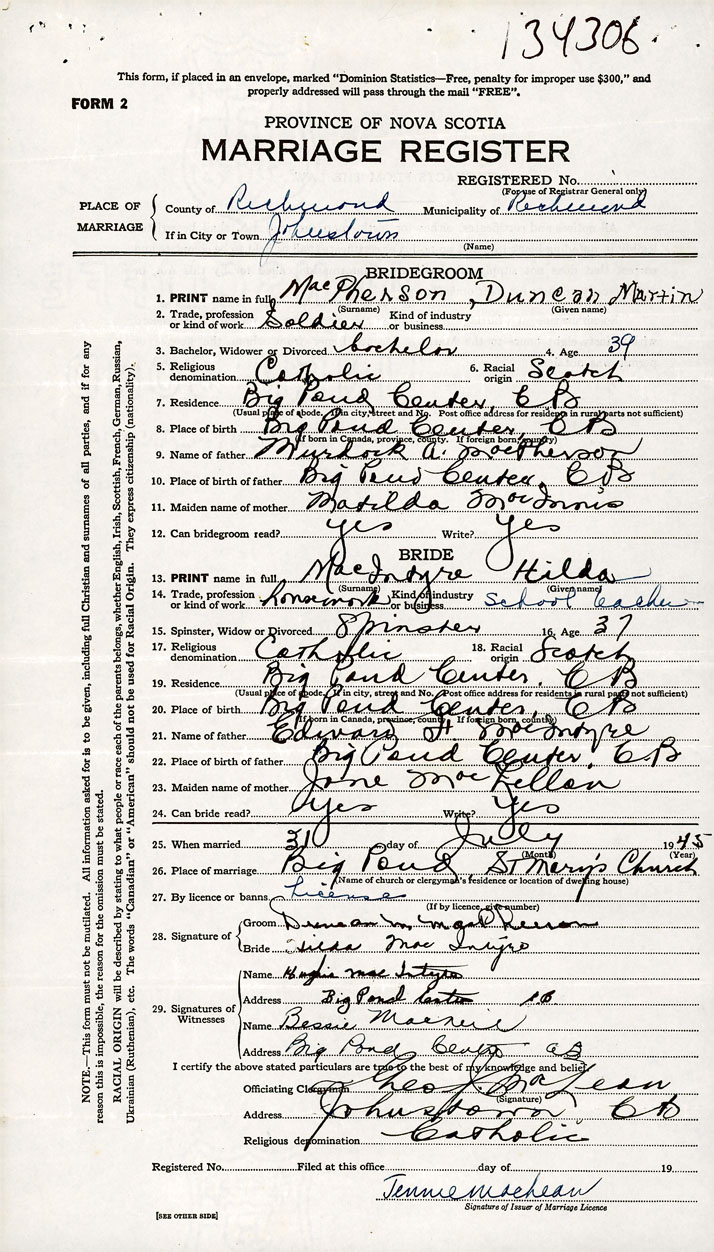 134306.
This form, if placed in an envelope, marked "Dominion Statistics—Free, penalty for improper use $300," and
properly addressed will pass through the mail "FREE".
FORM 2
PROVINCE OF NOVA SCOTIA
MARRIAGE REGISTER
REGISTERED No.
(For use of Registrar General only)
PLACE OF MARRIAGE
County of Richmond Municipality of Richmond
If in City or Town Johnstown
(Name)
BRIDEGROOM
1. PRINT name in full MacPherson, Duncan Martin
(Surname) (Given name)
2. Trade, profession or kind of work Soldier Kind of industry or business
3. Bachelor, Widower or Divorced bachelor 4. Age 39
5. Religious denomination Catholic 6. Racial origin Scotch
7. Residence Big Pond Center, CB
(Usual place of abode. If in city, street and No. Post office address for residents in rural parts not sufficient)
8. Place of birth Big Pond Center, CB
(If born in Canada, province, county. If foreign born, country)
9. Name of father Murdock A. MacPherson
10. Place of birth of father Big Pond Center, CB
11. Maiden name of mother Matilda MacInnis
12. Can bridegroom read? yes Write? yes
BRIDE
13. PRINT name in full MacIntyre Hilda
(Surname) (Given name)
14. Trade, profession or kind of work housework Kind of industry or business School teacher
15. Spinster, Widow or Divorced Spinster 16. Age 37
17. Religious denomination Catholic 18. Racial origin Scotch
19. Residence Big Pond Center, CB
(Usual place of abode. If in city, street and No. Post office address for residents in rural parts not sufficient)
20. Place of birth Big Pond Center, CB
(If born in Canada, province, county. If foreign born, country)
21. Name of father Edward H. MacIntyre
22. Place of birth of father Big Pond Center, CB
23. Maiden name of mother Jane MacLellan
24. Can bride read? yes Write? yes
25. When married 31 day of July 1945
(Month) (Year)
26. Place of marriage Big Pond, St Mary's Church
(Name of church or clergyman's residence or location of dwelling house)
27. By licence or banns License
(If by licence, give number)
28. Signature of
Groom Duncan M. MacPherson
Bride Hilda MacIntyre
29. Signatures of Witnesses
Name MacIntyre
Address Big Pond Centre CB
Name Bessie MacNeil
Address Big Pond Centre CB
I certify the above stated particulars are true to the best of my knowledge and belief.
Officiating Clergyman Geo J. MacLean
(Signature)
Address Johnstown CB
Religious denomination Catholic
Registered No. Filed at this office day of 19
Jennie MacLean
Signature of Issuer of Marriage Licence
[SEE OTHER SIDE]
NOTE.—This form must not be mutilated. All information asked for is to be given, including full Christian and surnames of all parties, and if for any
reason this is impossible, the reason for the omission must be stated.
RACIAL ORIGIN will be described by stating to what people or race each of the parents belongs, whether English, Irish, Scottish, French, German, Russian,
Ukrainian (Ruthenian), etc. The words "Canadian" or "American" should not be used for Racial Origin. They express citizenship (nationality).